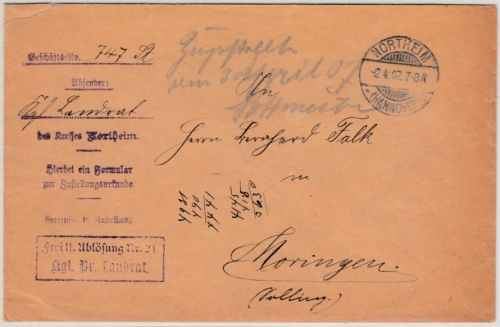 Geschäfts-No. 747 St
Absender:
Kgl. Landrat
des Kreises Northeim.
Hierbei ein Formular
zur Zustellungsurkunde.
Vereinfachte Zustellung
Frei lt. Ablösung Nr. 21
Kgl. Pr. Landrat.
Zugestellt
am 3 April 07
NORTHEIM
-2.4.07. 7-8N.
(HANNOVER)
An
Herrn Bernhard Falk
in
Moringen.
(Solling.)